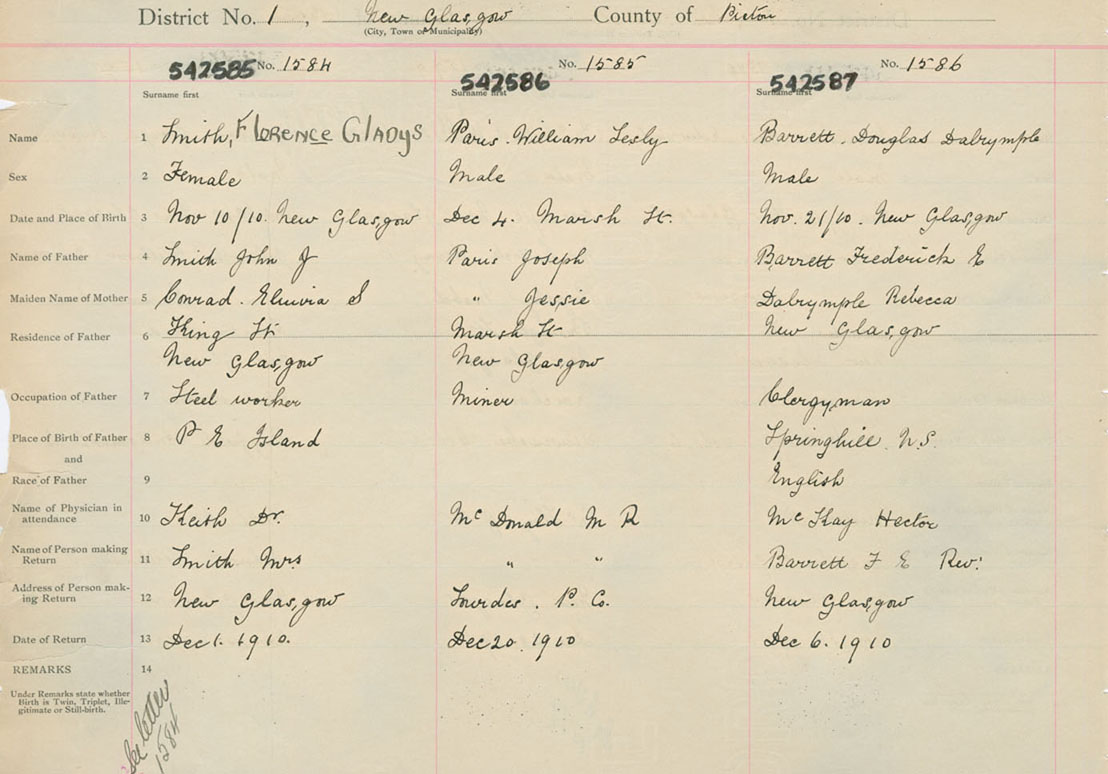 District No. 1, New Glasgow County of Pictou
(City, Town or Municipality)
542585 No. 1584 542586 No. 1585 542587 No. 1586
Surname first Surname first Surname first
Name 1 Smith, Florence Gladys Paris. William Lesly Barrett. Douglas Dalrymple
Sex 2 Female Male Male
Date and Place of Birth 3 Nov 10/10. New Glasgow Dec 4. Marsh St. Nov. 21/10. New Glasgow
Name of Father 4 Smith John J Paris Joseph Barrett Frederick E
Maiden Name of Mother 5 Conrad. S " Jessie Dalrymple Rebecca
Residence of Father 6 King St Marsh St New Glasgow
New Glasgow New Glasgow
Occupation of Father 7 Steel worker Miner Clergyman
Place of Birth of Father 8 P E Island Springhill. N.S.
and
Race of Father 9 English
Name of Physician in
attendance 10 Keith Dr. McDonald M R McKay Hector
Name of Person making
Return 11 Smith Mrs " " Barrett F E Rev.
Address of Person mak-
ing Return 12 New Glasgow Lourdes. P. Co. New Glasgow
Date of Return 13 Dec 1. 1910. Dec 20. 1910 Dec 6. 1910
REMARKS 14
Under Remarks state whether
Birth is Twin, Triplet, Ille-
gitimate or Still-birth.
See letter
1584